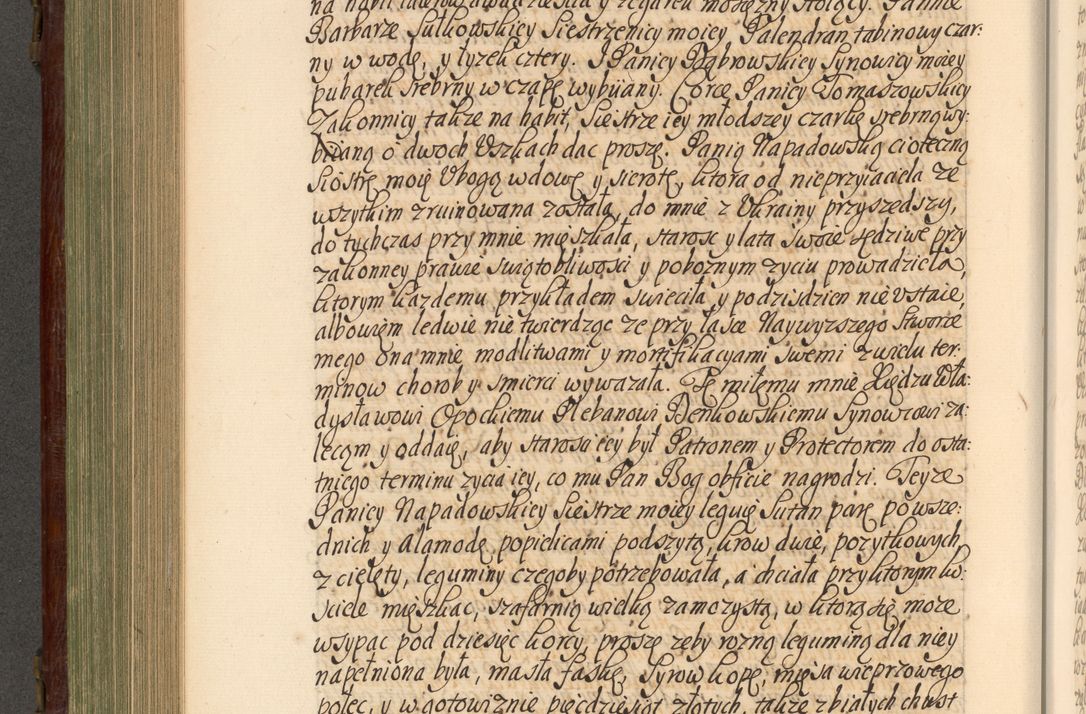 na habit talerow dwadziescia y zegarek mosiężny stoiący. Pannie
Barbarze Sułkowskiey Siestrzenicy moiey Palendran tabinowy czar:
ny w wodę, y łyzek cztery. J Panicy Dąbrowskiey Synowicy moiey
puharek srebrny w czapę wybiiany. Corce Panicy Tomaszowskiey
Zakonnicy takze na habit, Siestrze iey młodszey czarkę srebrną wy:
biianą o dwoch Uszkach dac proszę. Panią Napadowską cioteczną
Siostrę moię Ubogą wdowę y sierotę, ktora od nieprzyiaciela ze
wszytkim zruinowana została, do mnie z Ukrainy przyszedszy,
do tychczas przy mnie mięszkała, starosc y lata swoie sędziwe przy
zakonney prawie swiątobliwosci y poboznym zyciu prowadzieła,
ktorym kazdemu przykładem swieciła y podzisdzien nie Ustaie,
albowięm ledwie nie twierdząc ze przy łasce Naywyzszego Stworce
mego ona mnię modlitwami y mortifikacyami swemi z wielu ter:
minow choroby y smierci wywazała. Tę miłemu mnie Xiędzu Wła:
dysławowi Opockiemu Plebanowi Bęnkowskiemu Synowcowi za:
lecąm y oddaię, aby starosci iey był Patronem y Protectorem do osta:
tniego terminu zycia iey, co mu Pan Bog obficie nagrodzi. Teyze
Panicy Napadowskiey Siestrze moiey leguię Sutan parę powsze:
dnich y Alamodę popielicami podszytą, krow dwie, pozytkowych
z cielęty, leguminy czegoby potrzebowała, a chciała przy ktorym ko:
sciele mięszkac, szafarnią wielką zamozystą, w ktorą się moze
wsypac pod dziesięc korcy, proszę zeby rozną leguminą dla niey
napełniona była, masła faskę, syrow kopę, mięsa wieprzowego
połec, y w gotowiznie pięcdziesiąt złotych, takze z białych chust